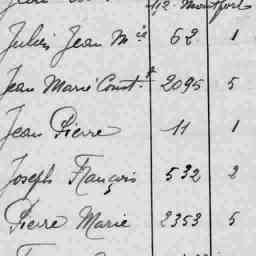 112 Montfort
Julien Jean Mie 62 1
Jean Marie Const.t 2095 5
Jean Pierre 11 1
Joseph François 532 2
Pierre Marie 2353 5